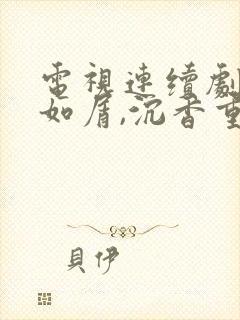 電視連續劇
如屑,沉香重
貝伊